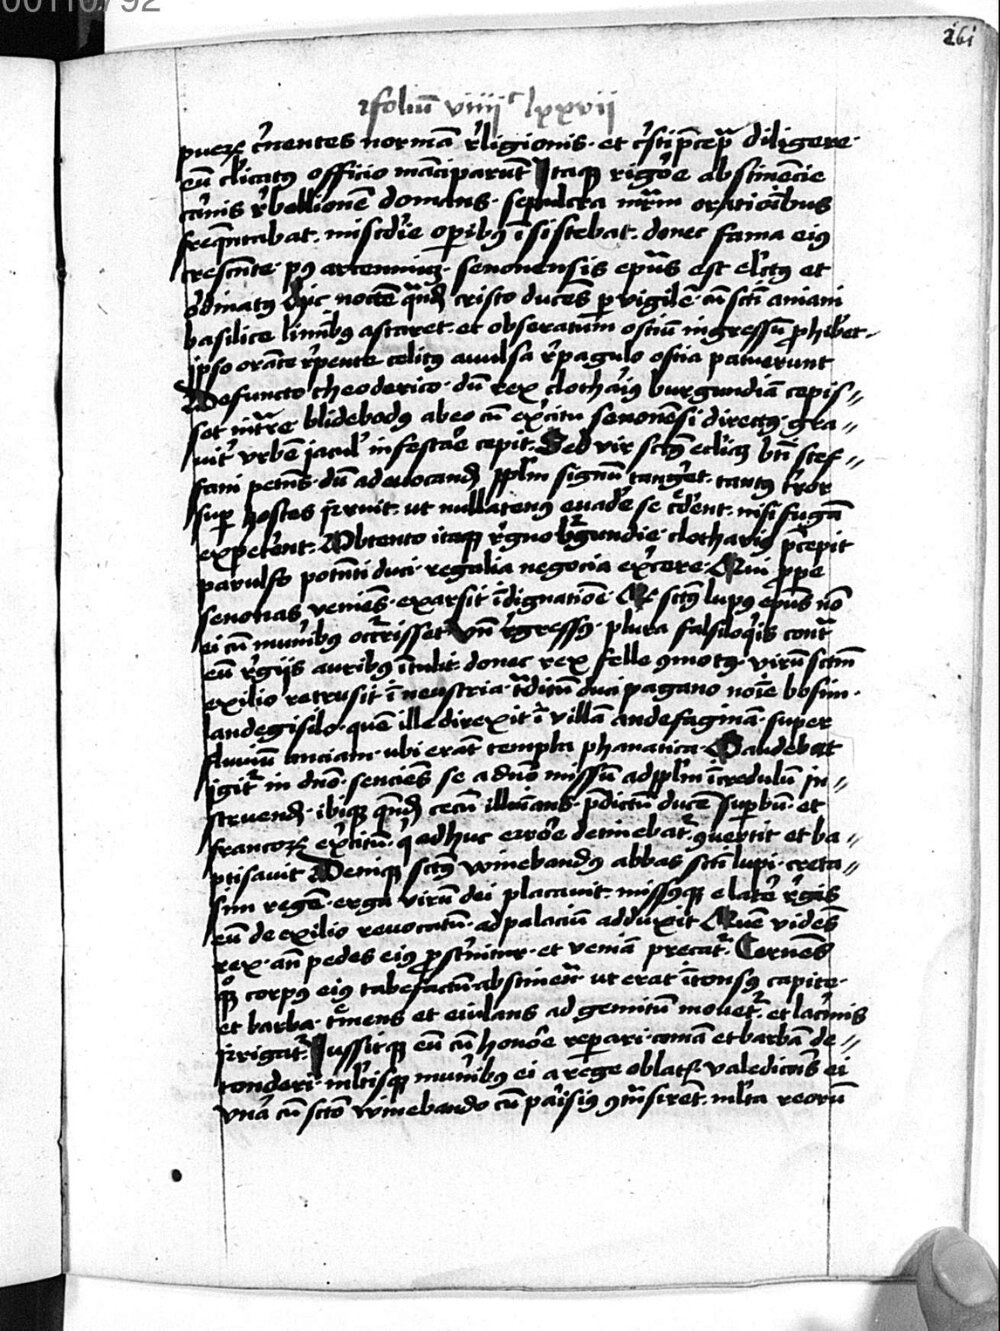 00110792
261
folium viiijc lxxvii
puerum cernentes normam religionis · et cristi precepta diligere ·
eum clericatus officio manciparunt Itaque rigore abstinencie
carnis rebellionem domans · sepulcra martirum orationibus
frequentabat · misericordie operibus insistebat · donec fama eius
crescente · post artemium · senonensis episcopus est electus et
ordinatus Hic nocte quadam cristo duce pervigilem cum sancti aniani
basilice liminibus astaret · et obseratum ostium ingressum prohiberet
ipso orante repente celitus avulsa repagulo ostia patuerunt
Defuncto theoderico · dum rex clotharius burgundiam cepis-
set intrare blidebodus ab eo cum exercitu senonesi directus · gra-
viter urbem iaculis infestare cepit · Sed vir sanctus ecclesiam beati stef-
fani petens · dum ad evocandum populum signum tangeret · tantus terror
super hostes irruit · ut nullatenus evadere se crederent · nisi fugam
expeterent · Obtento itaque regno burgundie · clotharius precepit
parulfo potenti duci · regalia negocia exercere · Qui prope
senonas veniens · exarsit indignatione · Quod sanctus lupus episcopus non
ei cum muneribus occurrisset Unde regressus · plura falsiloquiis contra
eum regiis auribus intulit · donec rex felle commotus · virum sanctum
exilio retrusit in neustria · traditum duci pagano nomine bosoni ·
landegisilo · quem ille direxit in villam andesaginam · super
fluvium anciam · ubi erant templa phanatica · Gaudebat
igitur in domino · senciens se a domino missum ad populum incredulum in-
struendum · ibique quendam cecum illuminans · predictum ducem superbum · et
francorum exercitum · qui adhuc errore detinebatur · convertit et ba-
ptisavit Denique sanctus winebaudus abbas sancti lupi · creta-
sim regem · erga virum dei placavit · missusque e latere regis
eum de exilio revocatum · ad palacium adduxit Quem videns
rex · ante pedes eius prosternitur · et veniam precatur · Cernens
quod corpus eius tabefactum abstinentia · ut erat intonsus capite ·
et barba · tremens et eiulans ad gemitum movetur · et lacrimis
irrigatur · Iussitque eum cum honore reparari · comam et barbam de-
tonderi · multisque muneribus ei a rege oblatis · valedicens ei
una cum sancto winebaudo cum parisius transiret · multa reorum